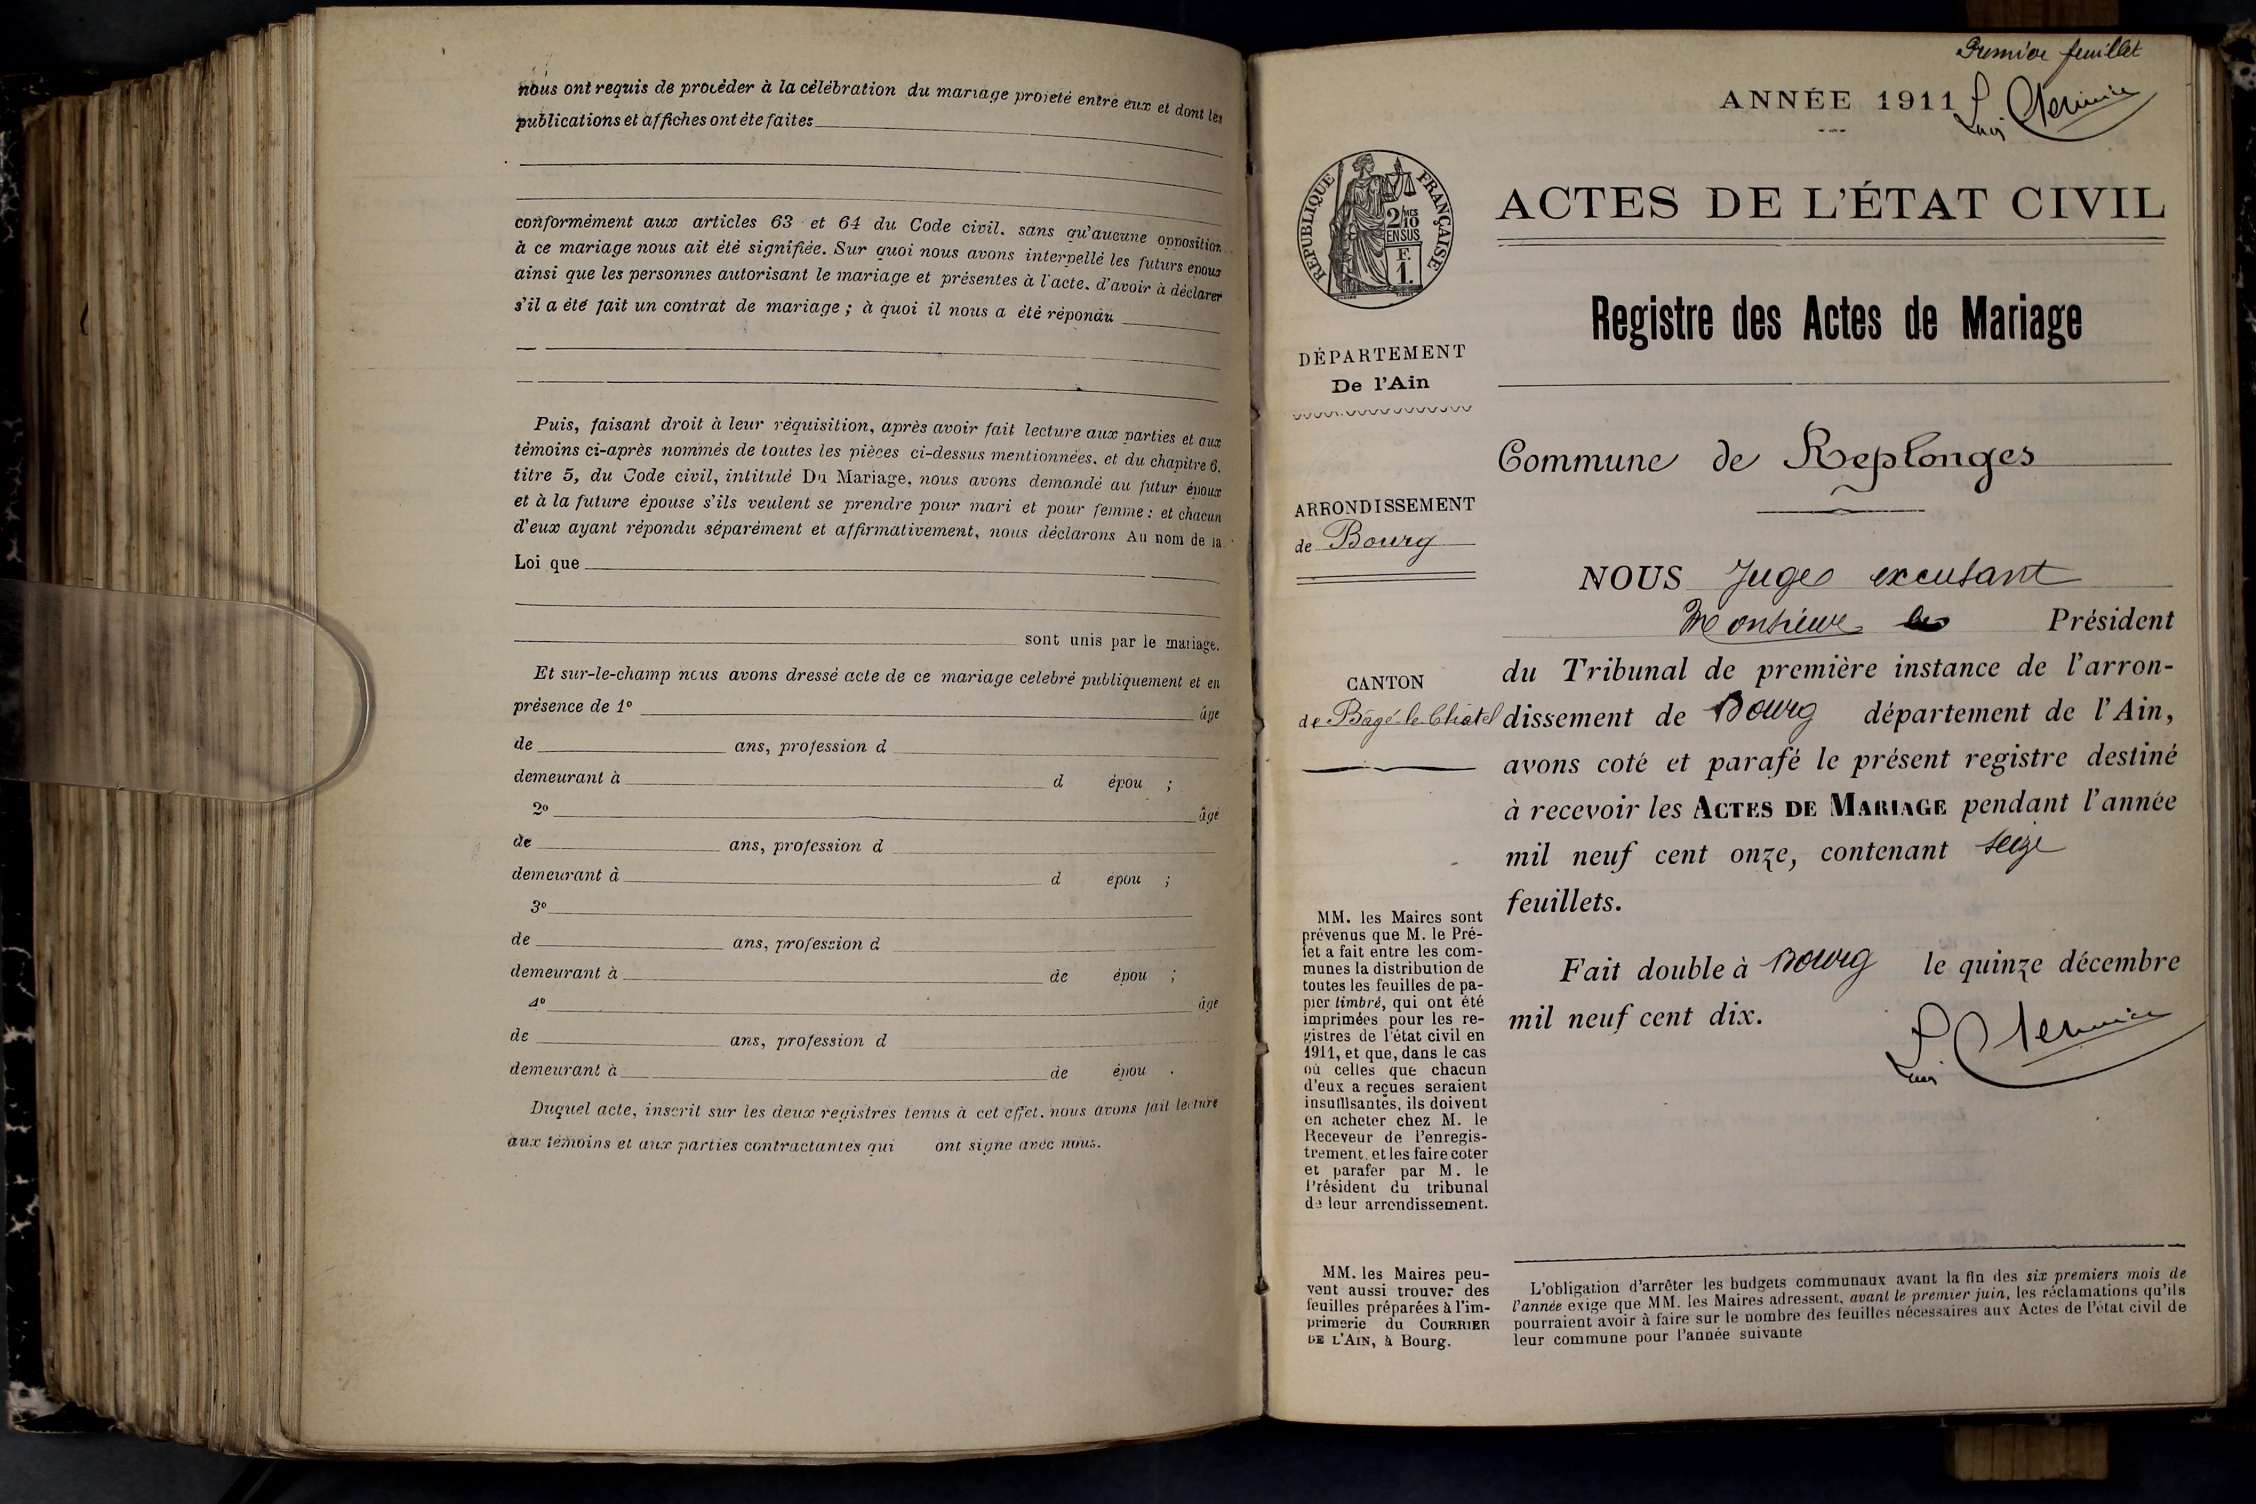 nous ont requis de procéder à la célébration du mariage projeté entre eux et dont les
publications et affiches ont été faites
conformément aux articles 63 et 64 du Code civil. sans qu'aucune opposition
à ce mariage nous ait été signifiée. Sur quoi nous avons interpellé les futurs époux
ainsi que les personnes autorisant le mariage et présentes à l'acte. d'avoir à déclarer
s'il a été fait un contrat de mariage ; à quoi il nous a été répondu
Puis, faisant droit à leur réquisition, après avoir fait lecture aux parties et aux
témoins ci-après nommés de toutes les pièces ci-dessus mentionnées. et du chapitre 6,
titre 5, du Code civil, intitulé Du Mariage, nous avons demandé au futur époux
et à la future épouse s'ils veulent se prendre pour mari et pour femme : et chacun
d'eux ayant répondu séparément et affirmativement, nous déclarons Au nom de la
Loi que
sont unis par le mariage.
Et sur-le-champ nous avons dressé acte de ce mariage celebré publiquement et en
présence de 1º âge
de ans, profession d
demeurant à d épou ;
2º âgé
de ans, profession d
demeurant à d épou ;
3º
de ans, profession d
demeurant à de épou ;
4º âgé
de ans, profession d
demeurant à de épou .
Duquel acte, inscrit sur les deux registres tenus à cet effet. nous avons fait lecture
aux témoins et aux parties contractantes qui ont signé avec nous.
Premier feuillet
ANNÉE 1911
RÉPUBLIQUE FRANÇAISE
2/10 MES
EN SUS
F.
1.
ACTES DE L'ÉTAT CIVIL
Registre des Actes de Mariage
DÉPARTEMENT
De l'Ain
Commune de Replonges
ARRONDISSEMENT
de Bourg
NOUS Juge excusant
Monsieur le Président
du Tribunal de première instance de l'arron-
CANTON
de Bâgé-le-Châtel
dissement de Bourg département de l'Ain,
avons coté et parafé le présent registre destiné
à recevoir les ACTES DE MARIAGE pendant l'année
mil neuf cent onze, contenant seize
feuillets.
Fait double à Bourg le quinze décembre
mil neuf cent dix.
MM. les Maires sont
prévenus que M. le Pré-
fet a fait entre les com-
munes la distribution de
toutes les feuilles de pa-
pier timbré, qui ont été
imprimées pour les re-
gistres de l'état civil en
1911, et que, dans le cas
où celles que chacun
d'eux a reçues seraient
insuffisantes, ils doivent
en acheter chez M. le
Receveur de l'enregis-
trement, et les faire coter
et parafer par M. le
Président du tribunal
de leur arrondissement.
MM. les Maires peu-
vent aussi trouver des
feuilles préparées à l'im-
primerie du COURRIER
DE L'AIN, à Bourg.
L'obligation d'arrêter les budgets communaux avant la fin des six premiers mois de
l'année exige que MM. les Maires adressent, avant le premier juin, les réclamations qu'ils
pourraient avoir à faire sur le nombre des feuilles nécessaires aux Actes de l'état civil de
leur commune pour l'année suivante